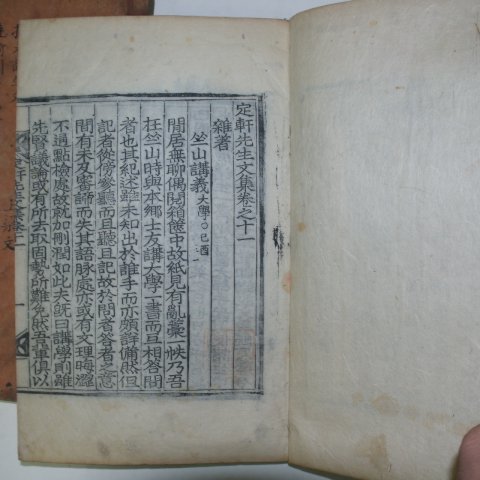 定軒先生文集卷之十一
雜著
竺山講義 大學○己酉
閒居無聊偶閱箱篋中故紙見有亂藁一帙乃吾
在竺山時與本鄉士友講大學一書而互相答問
者也其紀述雖未知出於誰手而亦頗詳備然但
記者從傍參聽而且聽且記故於問者答者之意
間有未及審諦而失其語脉處亦或有文理晦澀
不過點檢處故就加刪潤如此夫旣曰講學則雖
先賢議論或有所去取固勢所難免然吾輩俱以
定軒先生文集 卷之十一 一